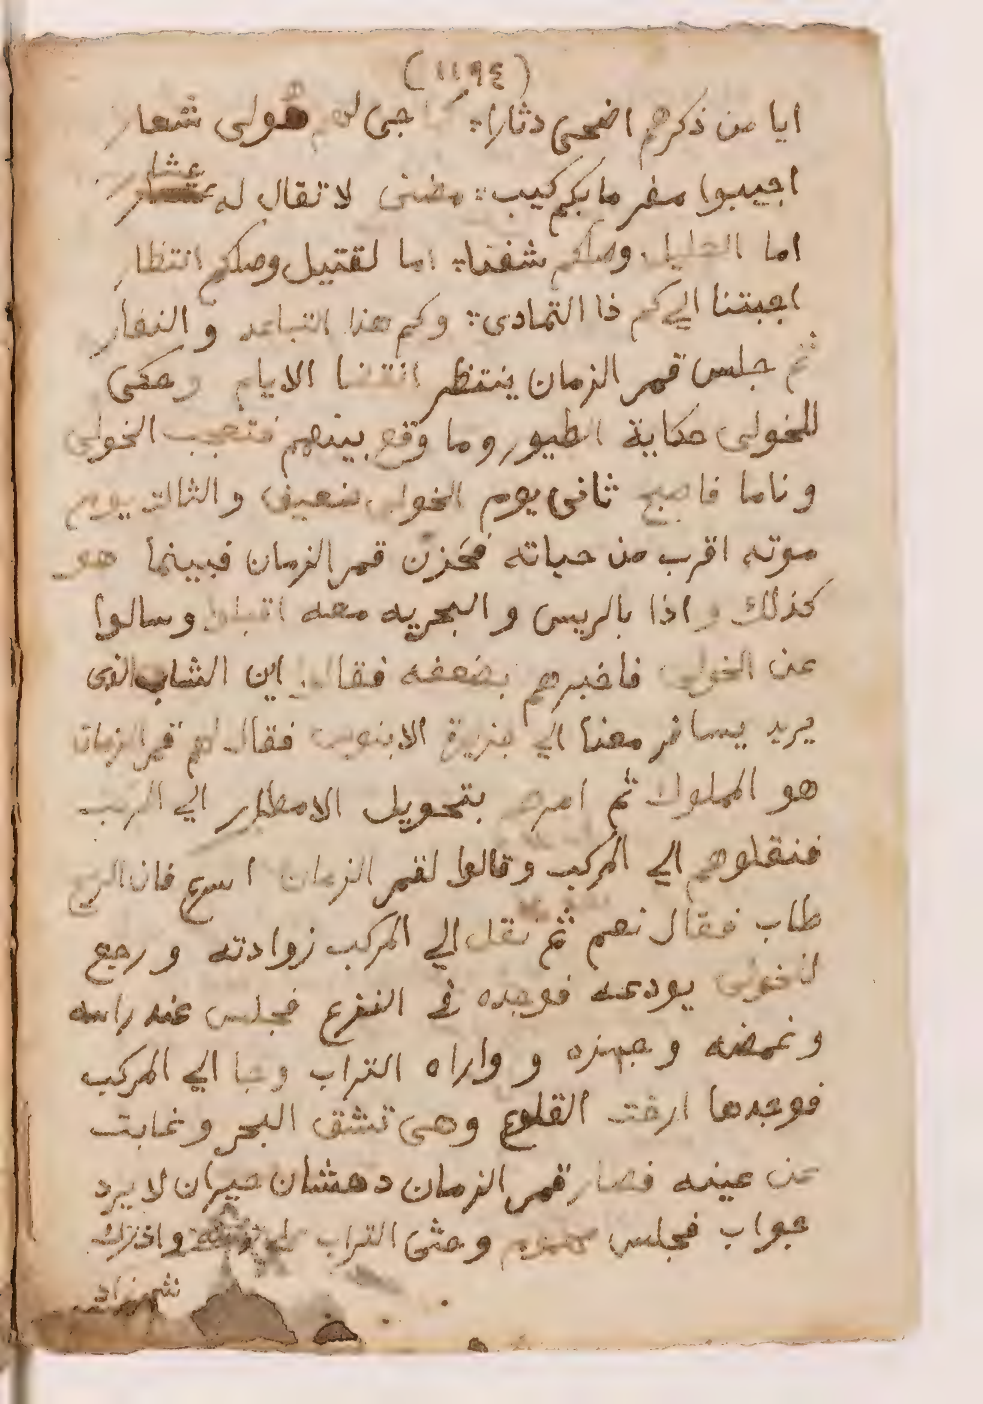 (١١٩٤)
ايا من ذكرهم اضحى دثارا؞ جى لهم هولى شعار
اجيبوا سفر ما بكم كيب؞ مضنى لا تقال له عشار
اما العليل وصلكم شفنا؞ اما لقتيل وصلكم انتظار
اجبتنا الي كم ذا التمادى؞ وكم هذا التباعد و النفار
ثم جلس قمر الزمان ينتظر انقضا الايام وحكى
للخولى حكاية الطيور وما وقع بينهم فتعجب الخولى
وناما فاصبح ثانى يوم الخولى ضعيف والثالث يوم
موته اقرب من حياته فحزن قمر الزمان فبينما هو
كذلك و اذا بالريس و البحريه معه اقبلوا وسالوا
عن الخولى فاخبرهم بضعفه فقالوا اين الشاب الذى
يريد يسافر معنا الي جزيرة الابنوس فقال لهم قمر الزمان
هو المملوك ثم امرهم بتحويل الامطار الي المركب
فنقلوهم الي المركب وقالوا لقمر الزمان اسرع فان الريح
طاب فقال نعم ثم نقل الي المركب زوادته و رجع
لخولى يودعه فوجده في النزع فجلس عند راسه
وغمضه وجهزه و واراه التراب وجا الي المركب
فوجدها ارخت القلوع وهى تشق البحر وغابت
عن عينه فصار قمر الزمان دهشان حيران لا يرد
جواب فجلس وحثى التراب على وادرك
شهرزاد